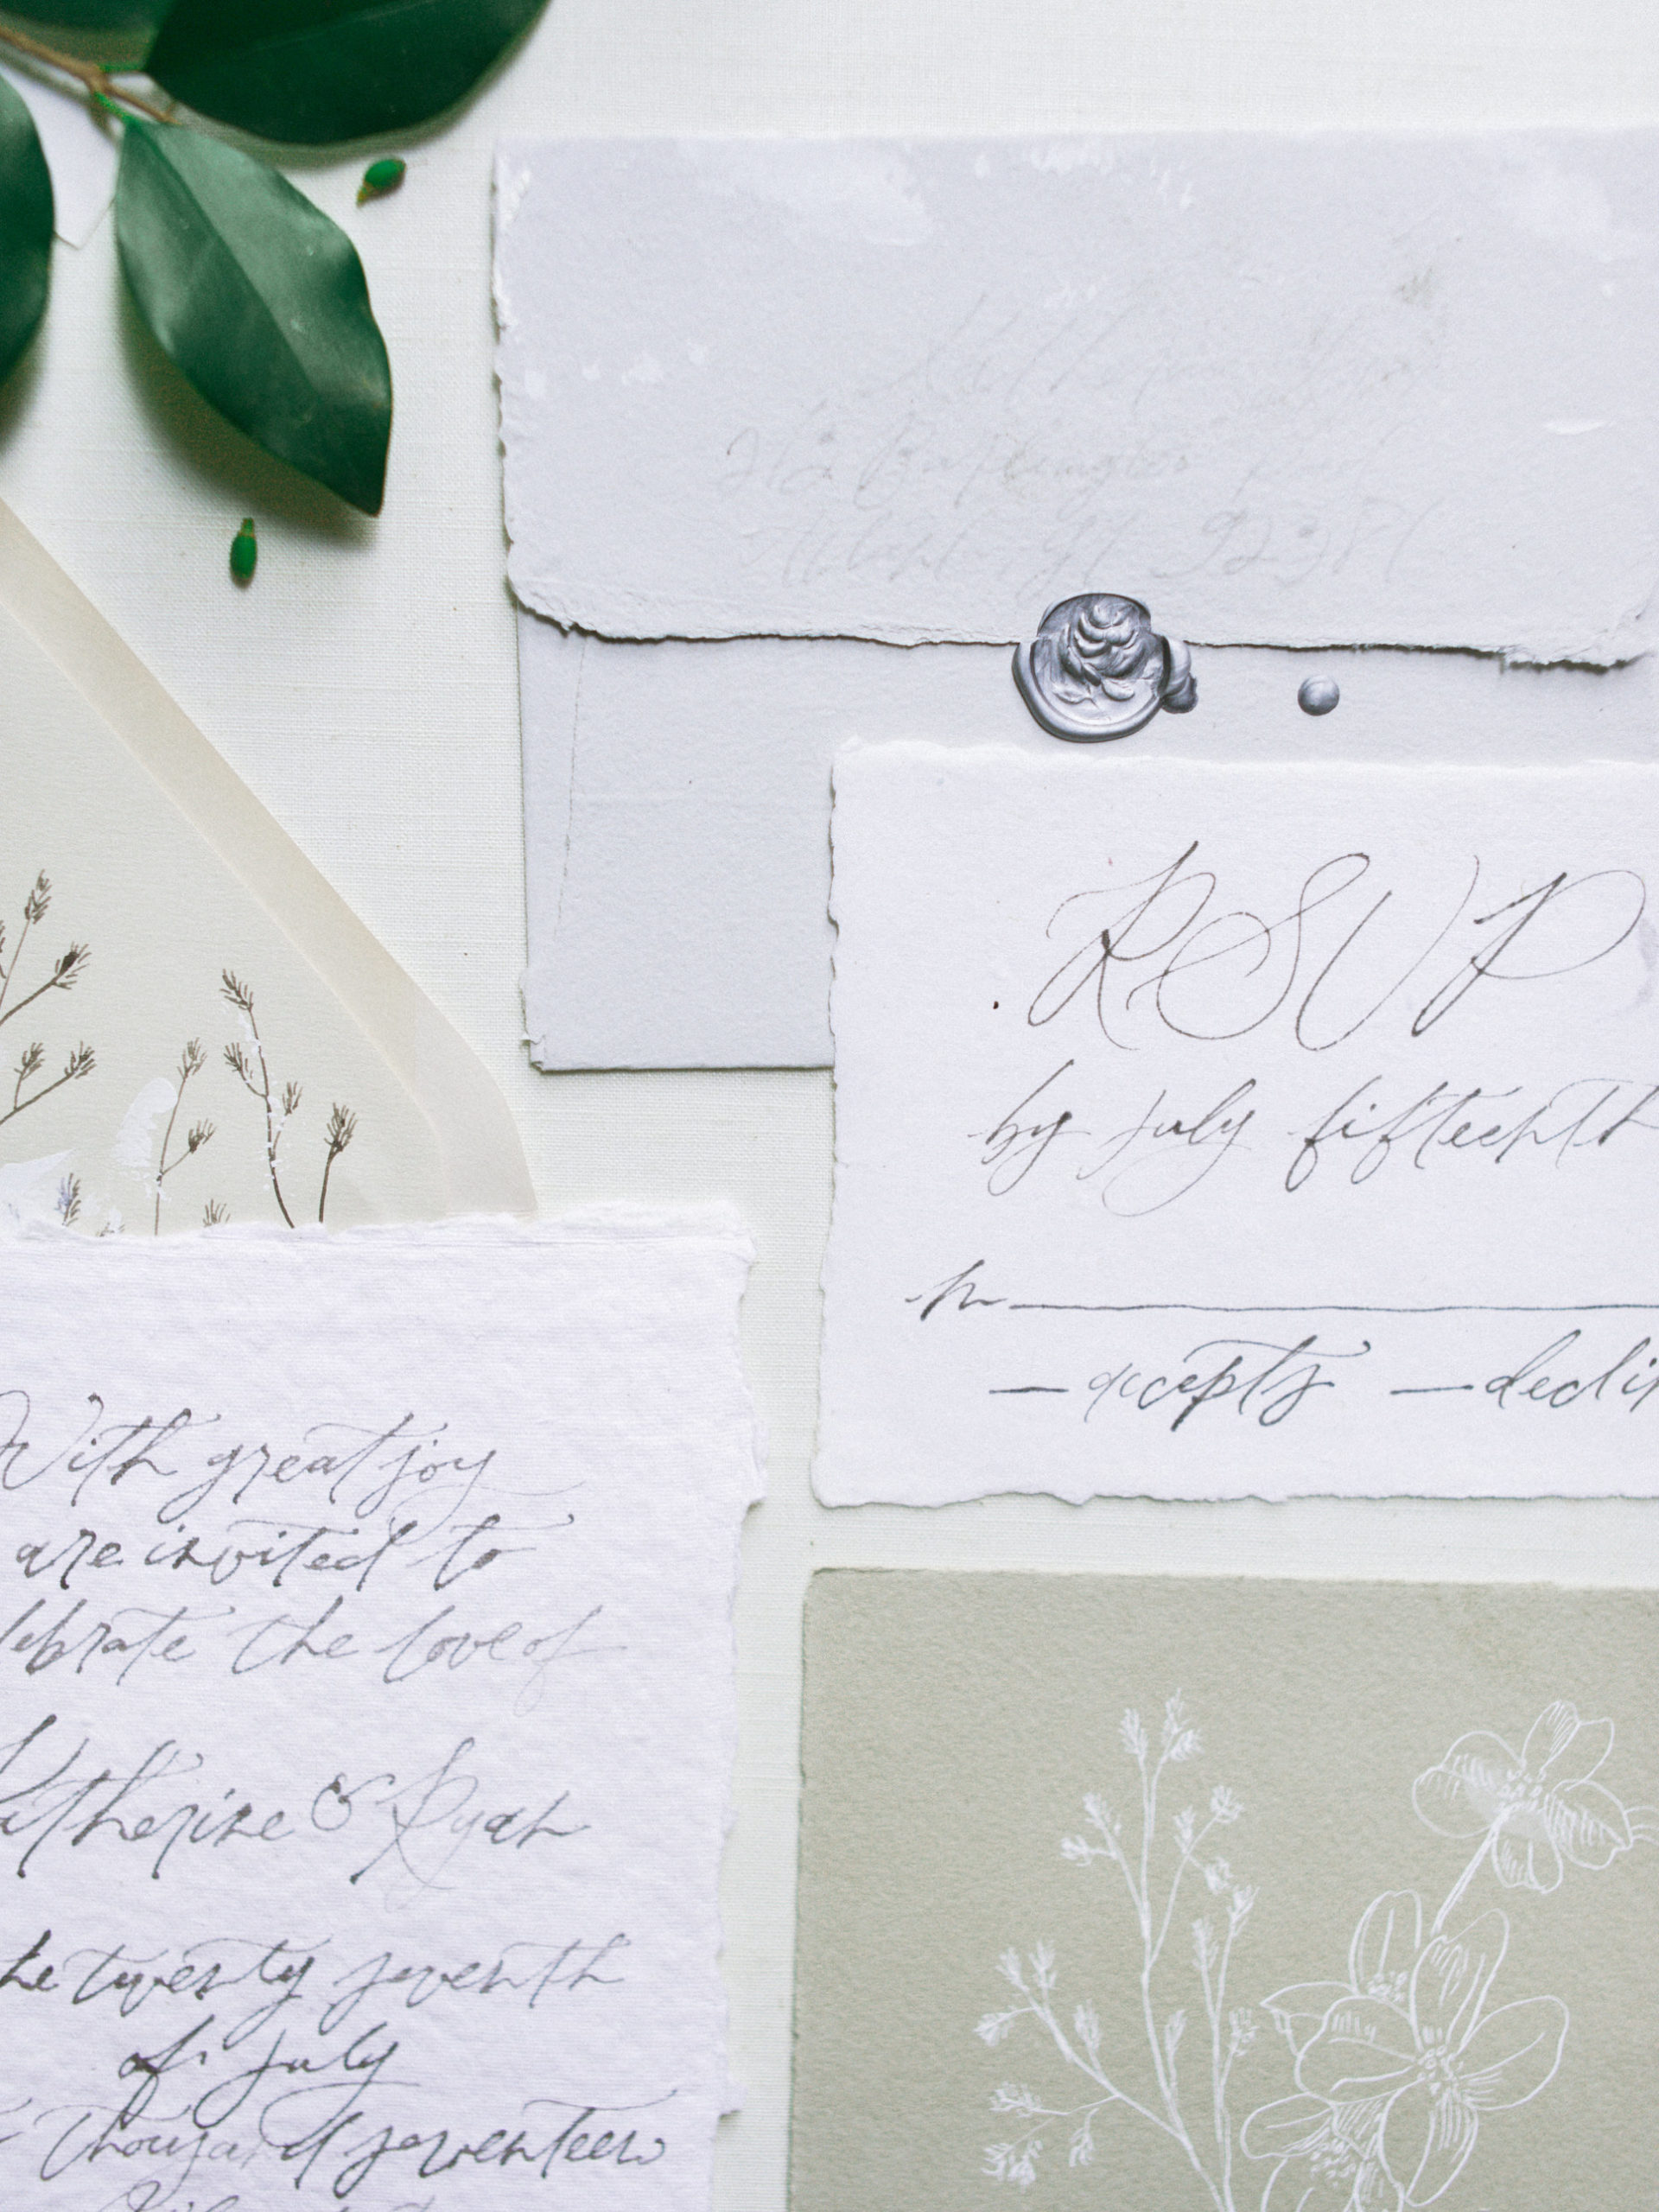 RSVP
by july fifteenth
m
accepts declin
With great joy
are invited to
lebrate the love of
Katherine & Ryan
he twenty seventh
of july
thousand seventeen